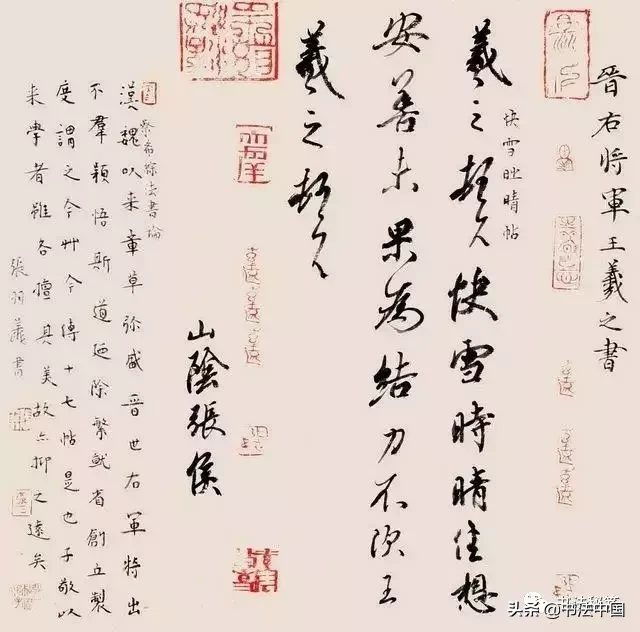 晉右将軍王羲之書
快雪时晴帖
羲之頓首快雪時晴佳想
安善未果為結力不次王
羲之頓首
山陰張侯
蔡希綜法書論
漢魏以来章草弥盛晉世右軍特出
不羣穎悟斯道廼除繁就省創立製
度謂之今艸今傳十七帖是也子敬以
来學者雖各擅其美故亦抑之遠矣
張羽書
头条@书法中国